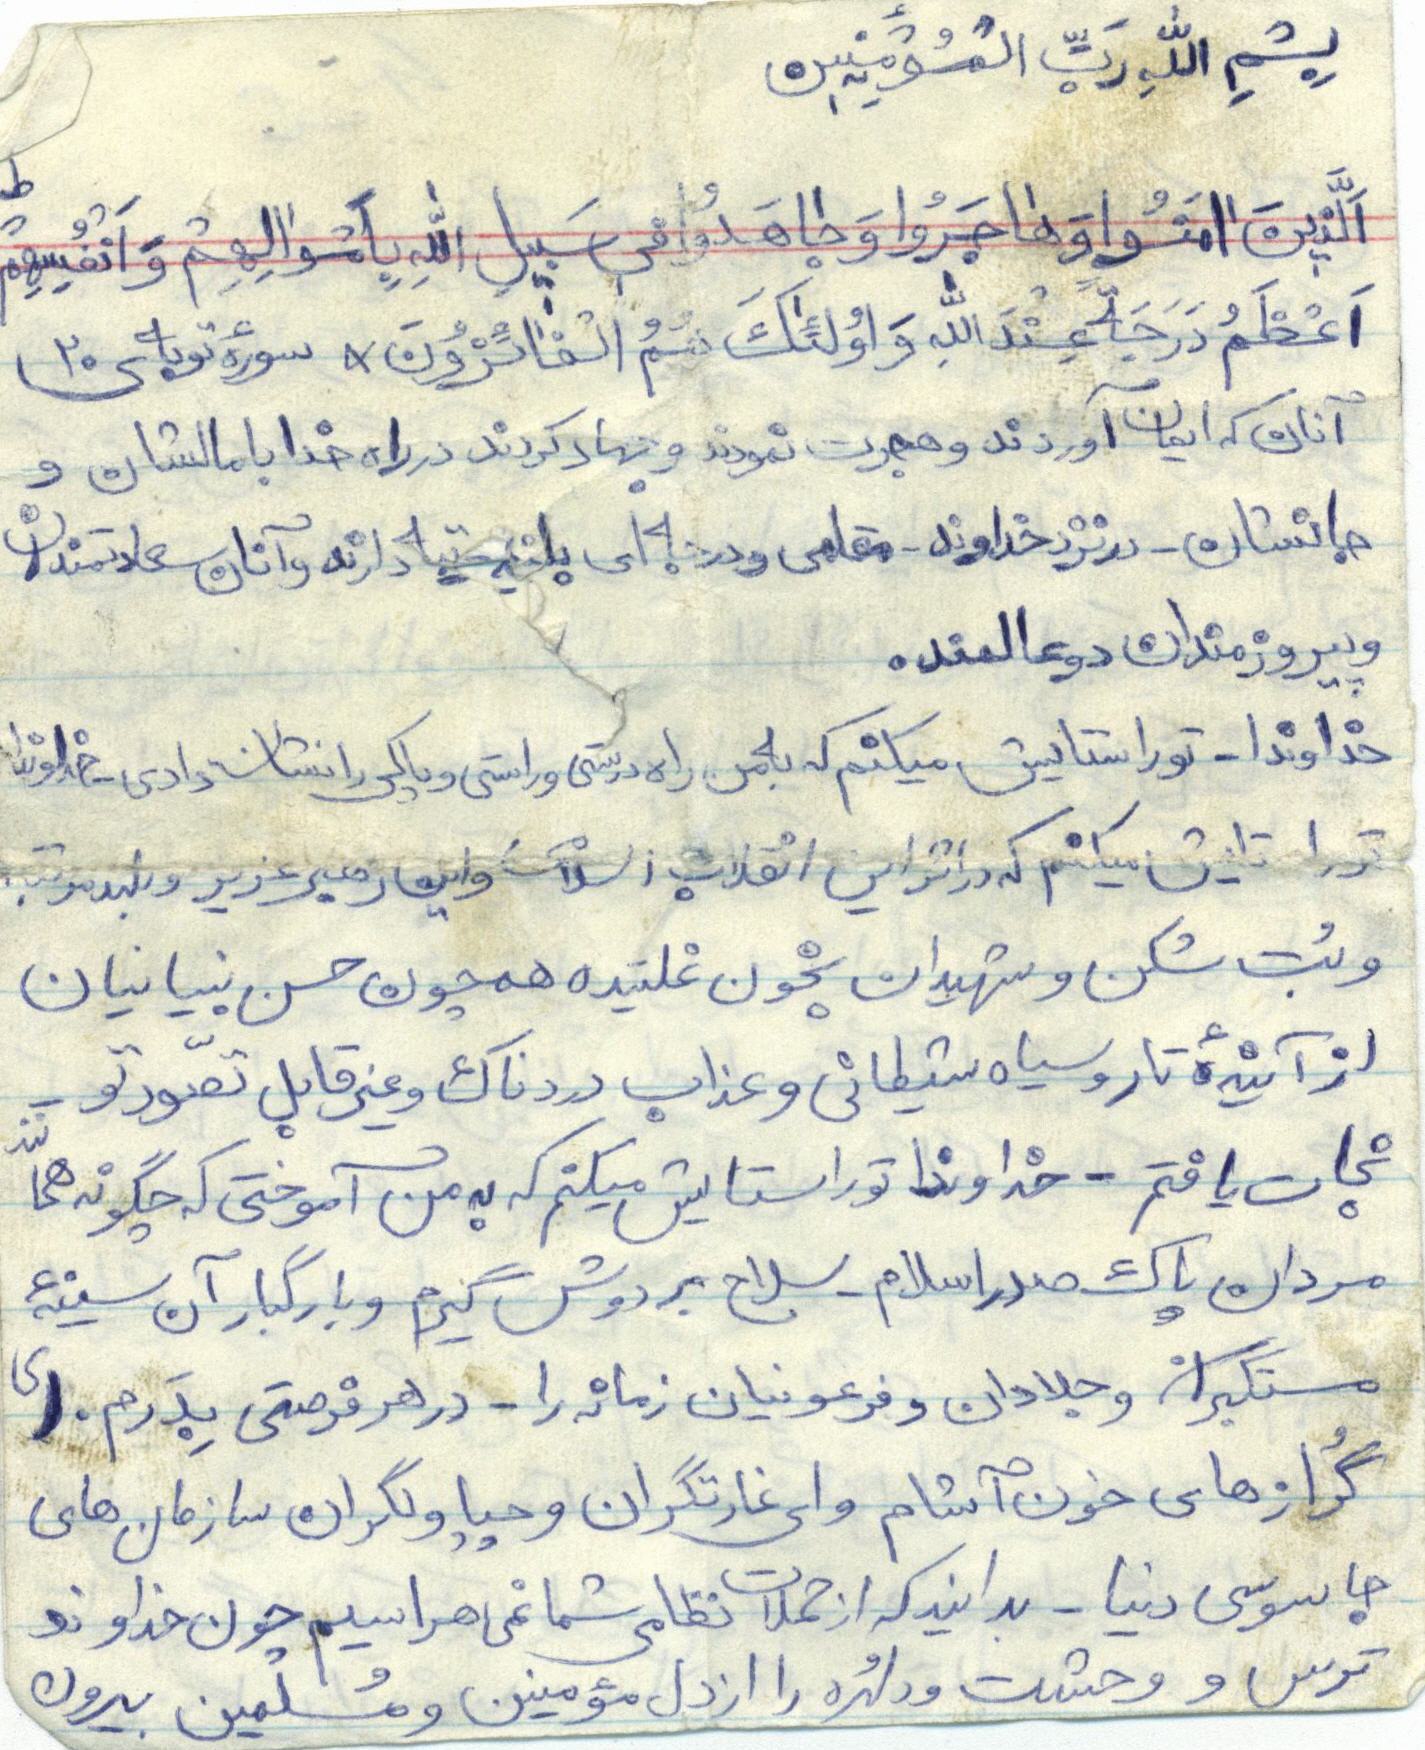 بِسْمِ اللهِ رَبِّ الْمُسْتُؤْمِنِین
اَلَّذِینَ امَنَوُا وَهاجَرُوا وَجاهَدُوا فی سَبیلِ اللهِ بِاَمْوالِهِمْ وَ اَنْفُسِهِمْ ط
اَعْظَمُ دَرَجَةً عِنْدَ اللهِ وَ اوُلئِکَ هُمُ الْفائِزُونَ * سورۀ توبه‌ی ۲۰
آنان که ایمان آوردند و هجرت نمودند و جهاد کردند در راه خدا با مالشان و
جانشان - در نزد خداوند - مقامی و درجه‌ای دارند و آنان سعادتمندان
و پیروزمندان دو عالمند.
خداوندا - تو را ستایش میکنم که به من راه درستی و راستی و پاکی را نشان دادی - خداوندا
تو را ستایش میکنم که در اثر این انقلاب و این رهبر عزیر و بلند مرتبه
و بُت شکن و شهیدان بخون غلتیده همچون حسن بنیانیان
از آئینۀ تار و سیاه شیطانی و عذاب دردناک و غیر قابل تصّور تو -
نجات یافتم - خداوندا تو را ستایش میکنم که به من آموختی که چگونه همانند
مردان پاک صدر اسلام - سلاح بر دوش گیرم و با رگبار آن سینۀ
مستکبران و جلادان و فرعونیان زمانه را - در هر فرصتی بِدَرم. ای
گُرازهای خون آشام و ای غارتگران و چپاولگران سازمان های
جاسوسی دنیا - بدانید که از حملات نظامی شما نمی هراسیم چون خداوند
ترس و وحشت و دلهره را از دل مؤمنین و مُسلمین بیرون